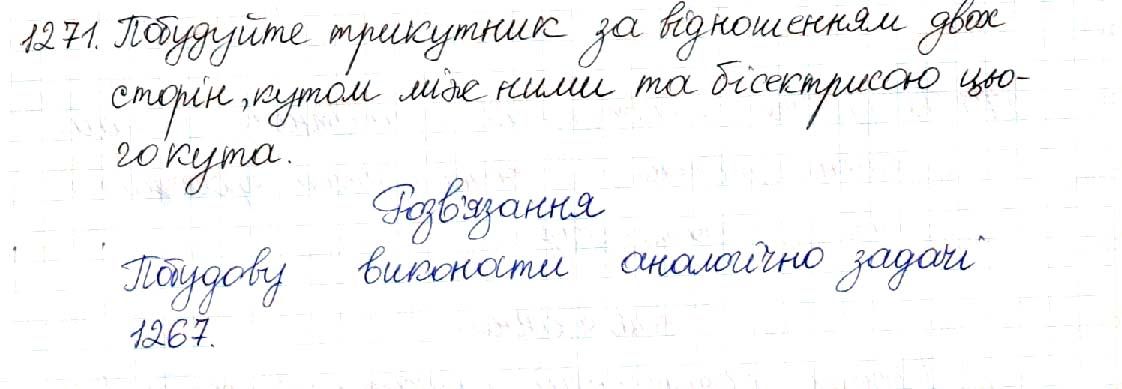 1271. Побудуйте трикутник за відношенням двох
сторін, кутом між ними та бісектрисою цьо-
го кута.
Розв'язання
Побудову виконати аналогічно задачі
1267.